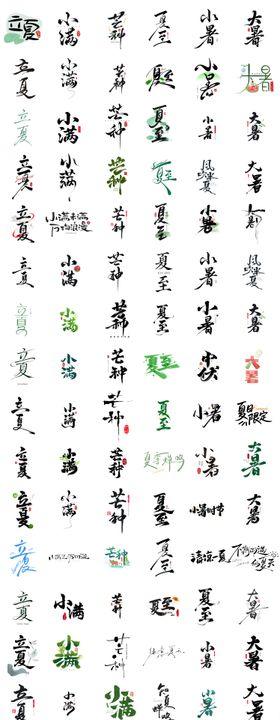 立夏 小满 芒种 夏至 小暑 大暑
立夏 小满 芒种 夏至 小暑 大暑
立夏 小满 芒种 夏至 小暑 大暑
立夏 小满 芒种 夏至 大暑
立夏 小满未满 芒种 夏至 小暑
立夏 小满 芒种 夏至 小暑
立夏 小满 芒种 夏至 小暑 大暑
立夏 小满 芒种 夏至 小伏 大暑
立夏 小满 芒种 夏至 小暑 夏日限定
立夏 小满 芒种 夏至蝉鸣 小暑 大暑
立夏 小满 芒种 夏至 小暑时节 大暑
立夏 芒种 夏至 清凉一夏
立夏 小满 芒种 夏至 小暑 大暑
立夏 小满 芒种 小暑 大暑
立夏 小满 小满 小暑 大暑